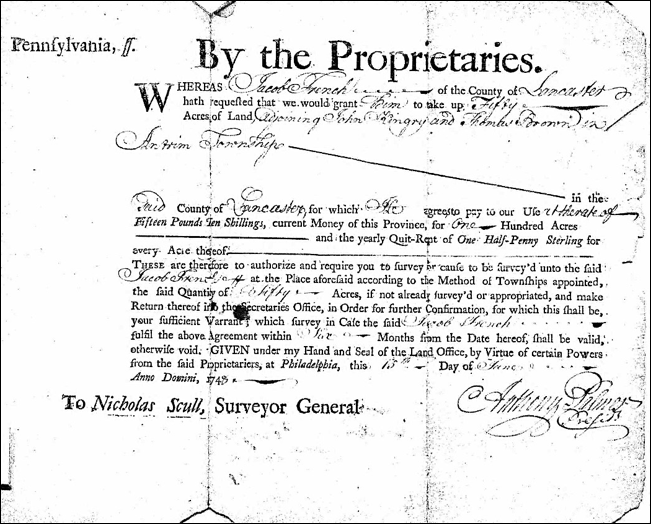 Pennsylvania, ss.
By the Proprietaries.
WHEREAS Jacob French of the County of Lancaster
hath requested that we would grant Him to take up Fifty
Acres of Land Adjoining John Pingry and Thomas Brown in
Antrim Township
in the
said County of Lancaster, for which He agrees to pay to our Use at the rate of
Fifteen Pounds Ten Shillings, current Money of this Province, for One Hundred Acres
and the yearly Quit-Rent of One Half-Penny Sterling for
every Acre thereof.
THESE are therefore to authorize and require you to survey or cause to be survey'd unto the said
Jacob French at the Place aforesaid according to the Method of Townships appointed,
the said Quantity of Fifty Acres, if not already survey'd or appropriated, and make
Return thereof into the Secretaries Office, in Order for further Confirmation, for which this shall be,
your sufficient Warrant; which survey in Case the said Jacob French
fulfil the above Agreement within Six Months from the Date hereof, shall be valid,
otherwise void. GIVEN under my Hand and Seal of the Land Office, by Virtue of certain Powers
from the said Proprietaries, at Philadelphia, this 15th Day of June
Anno Domini, 174
To Nicholas Scull, Surveyor General
Anthony Palmer
Presidt